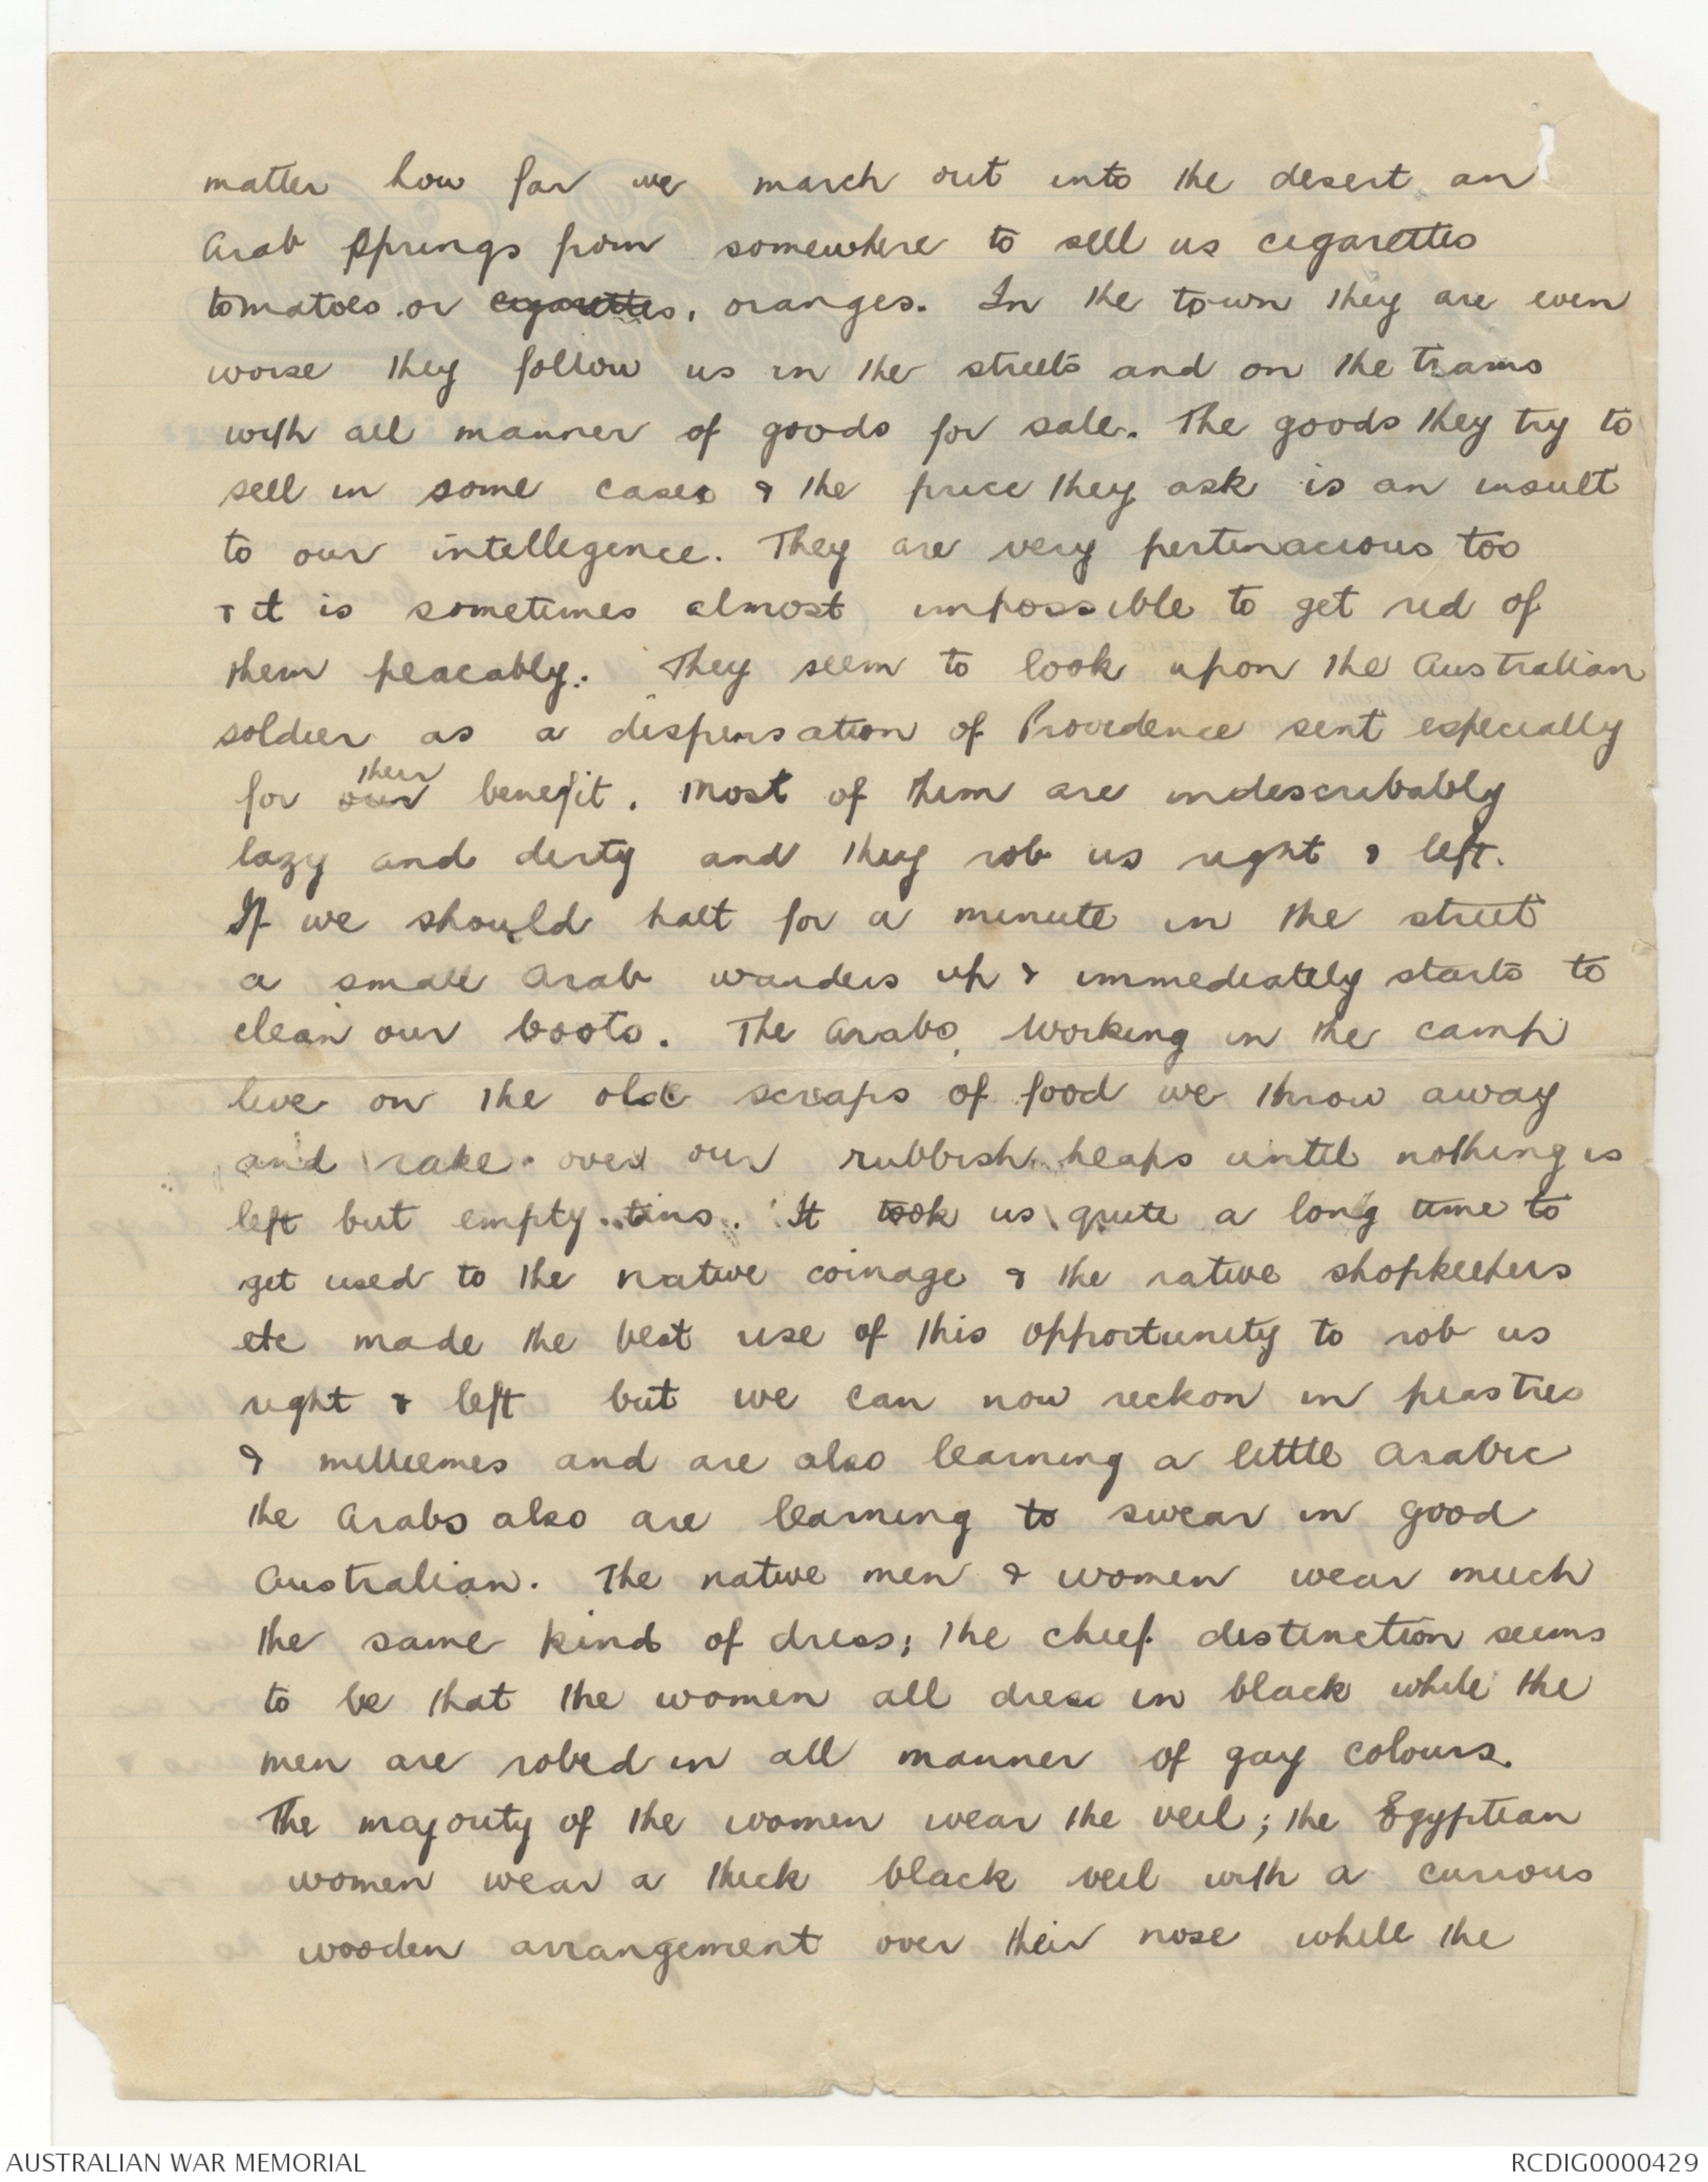 matter how far we march out into the desert an
Arab springs from somewhere to sell us cigarettes
tomatoes or cigarettes, oranges. In the town they are even
worse they follow us in the streets and on the trams
with all manner of goods for sale. The goods they try to
sell in some cases & the price they ask is an insult
to our intellegence. They are very pertinacious too
& it is sometimes almost impossible to get rid of
them peacably. They seem to look upon the Australian
soldier as a dispensation of Providence sent especially
their
for our benefit. Most of them are indescribably
lazy and dirty and they rob us right & left.
If we should halt for a minute in the street
a small Arab wanders up & immediately starts to
clean our boots. The Arabs, working in the camp
live on the old scraps of food we throw away
and rake over our rubbish heaps until nothing is
left but empty tins. It took us quite a long time to
get used to the native coinage & the native shopkeepers
etc made the best use of this opportunity to rob us
right & left but we can now reckon in piastres
& milliemes and are also learning a little Arabic
the Arabs also are learning to swear in good
Australian. The native men & women wear much
the same kind of dress; the chief distinction seems
to be that the women all dress in black while the
men are robed in all manner of gay colours.
The majority of the women wear the veil; the Egyptian
women wear a thick black veil with a curious
wooden arrangement over their nose while the
AUSTRALIAN WAR MEMORIAL
RCDIG0000429